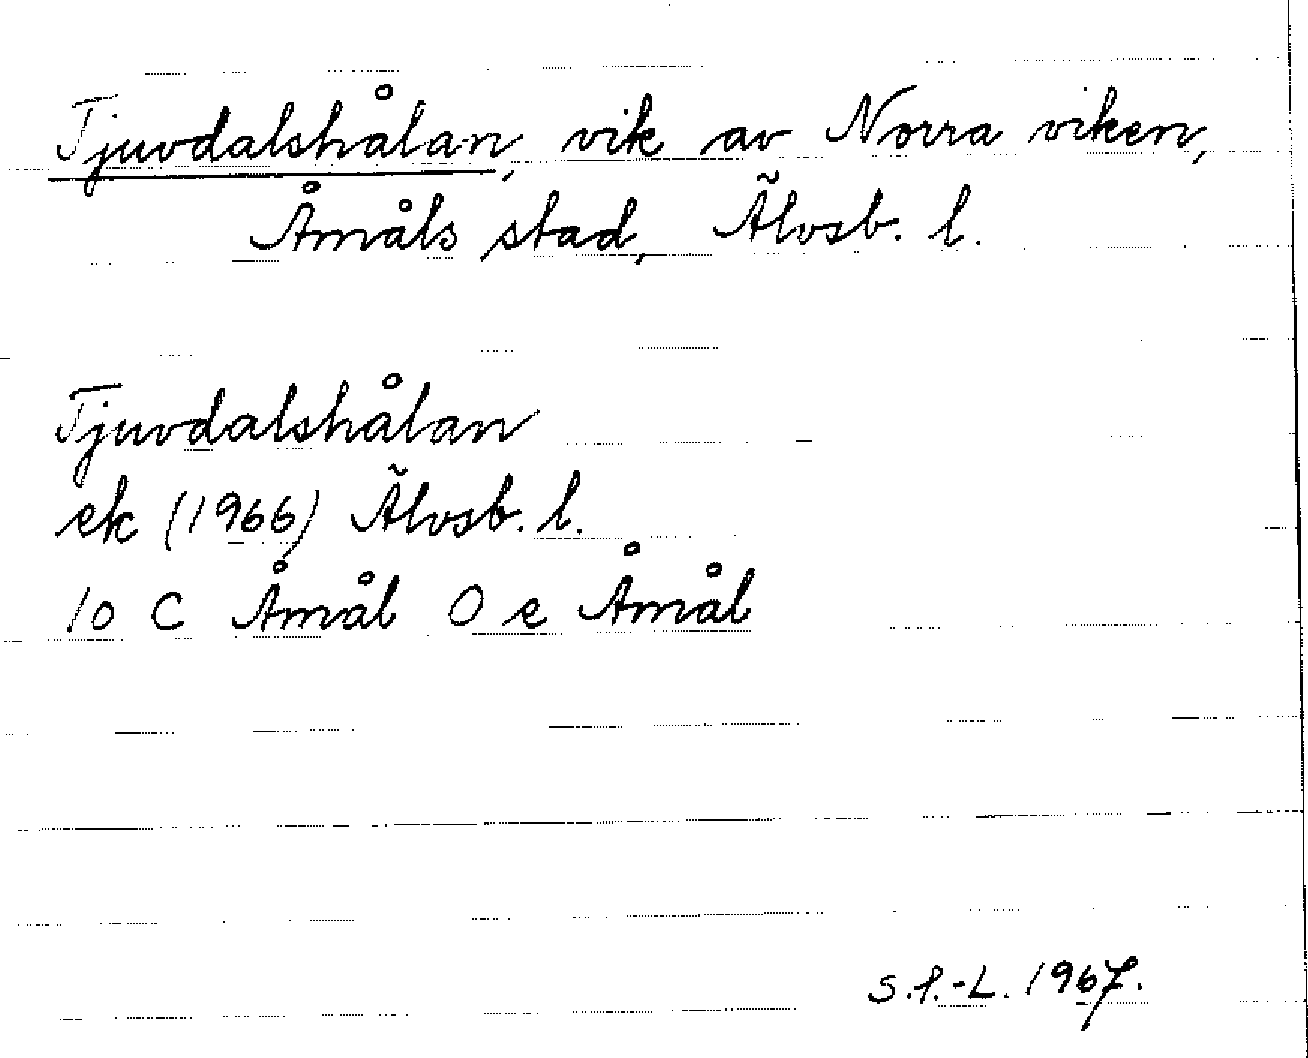 Tjuvdalshålan, vik av Norra viken,
Åmåls stad, Älvsb. l.
Tjuvdalshålan
ek (1966) Älvsb. l.
10 C Åmål 0 e Åmål
S.f.-L. 1967.